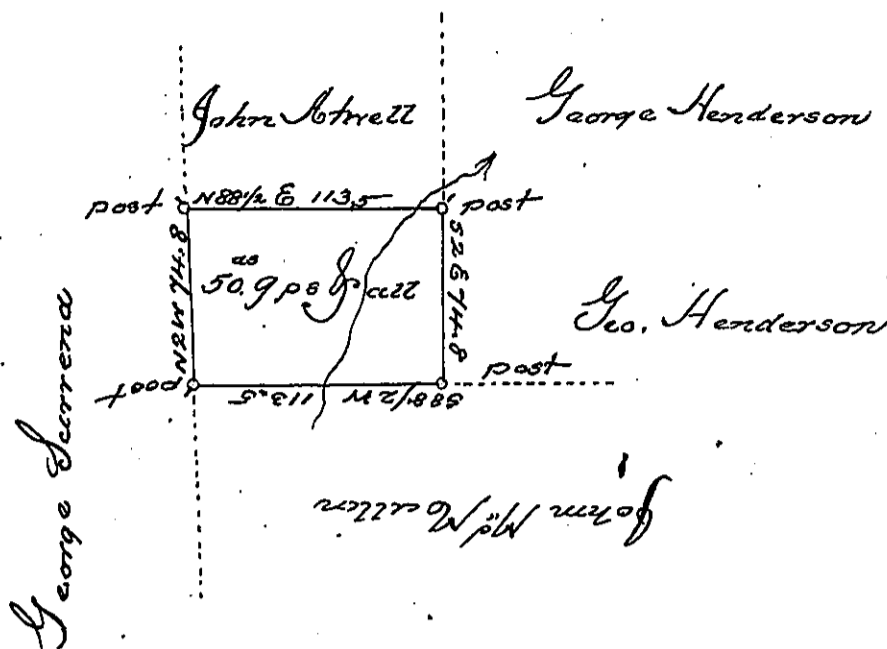 John Atwell
George Henderson
post
N88½ E 113,5
post
N2W 74.8
as
50.9 ps & all
S2E 74.8
Geo. Henderson
post
S88½ W 113.5
post
George Surrena
John